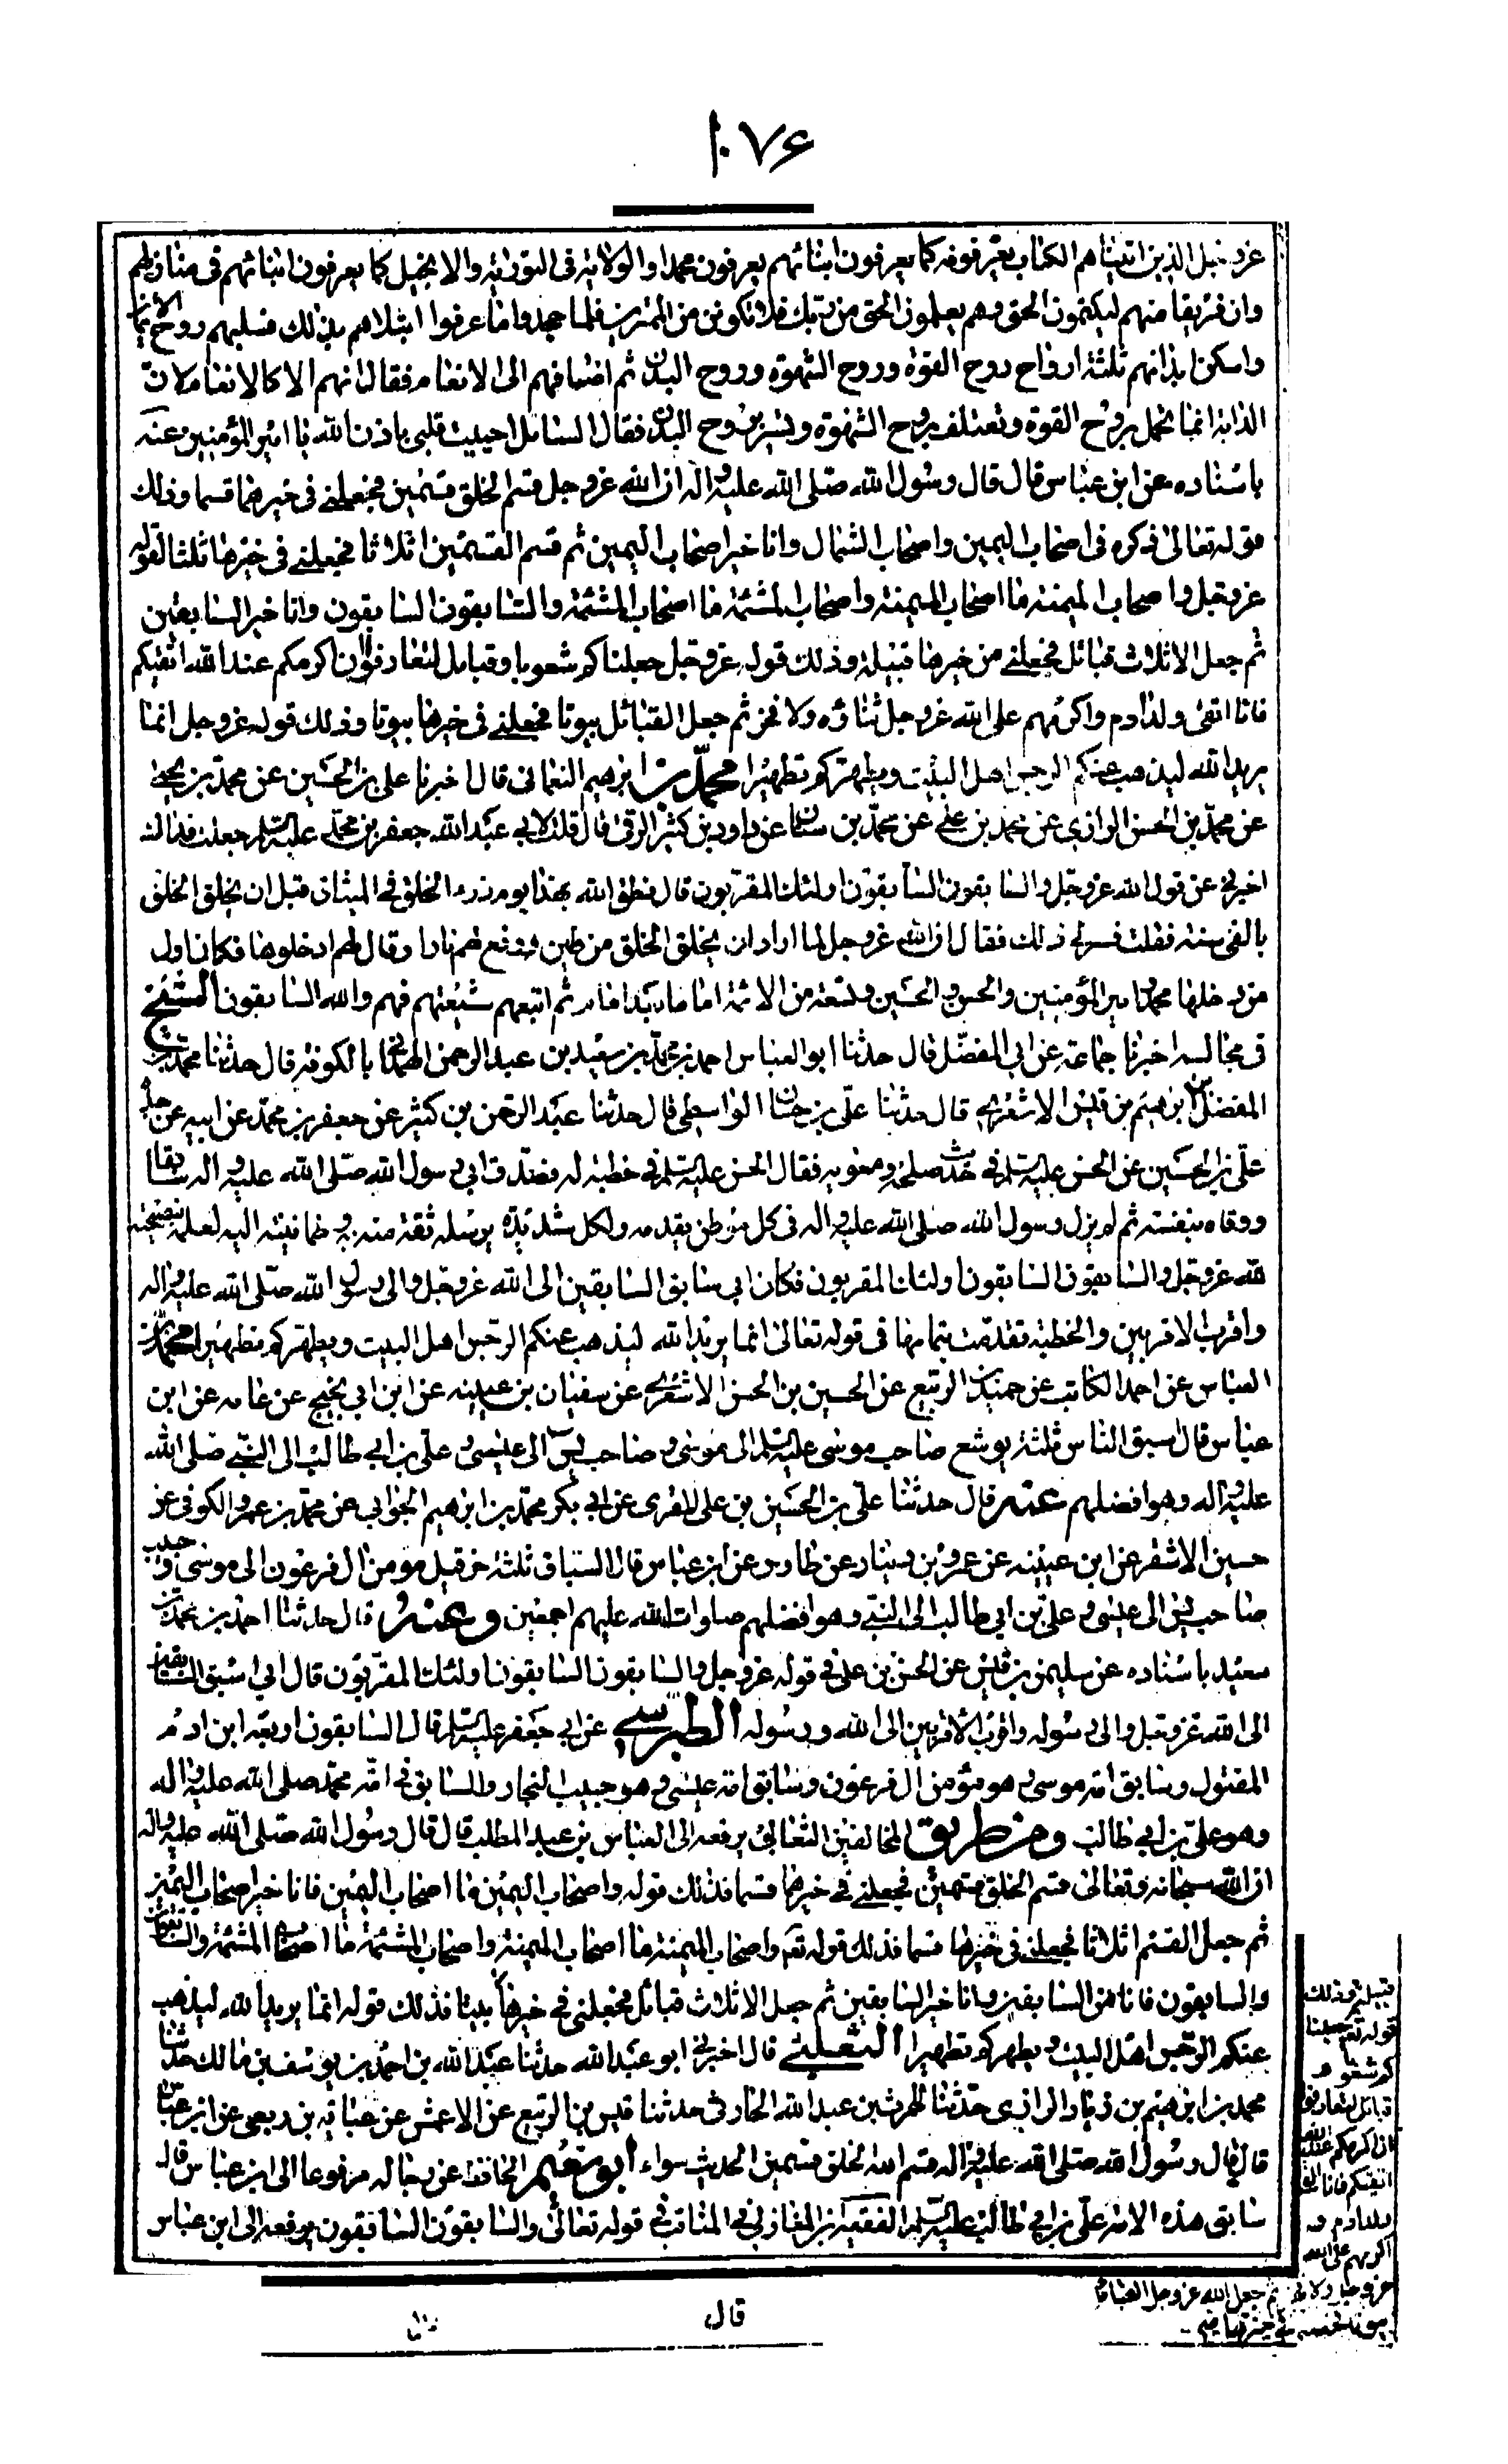 ١٠٧۶
عز و جل الذين اتيناهم الكتاب يعرفونه كما يعرفون ابنائهم يعرفون محمدا و الولاية فى التورية و الانجيل كما يعرفون ابنائهم فى منازلهم
وان فريقا منهم ليكتمون الحق وهم يعلمون الحق من ربك فلا تكونن من الممترين فلما جحدوا ما عرفوا ابتلاهم بذلك فسلبهم روح الايمان
واسكن ابدانهم ثلثة ارواح روح القوة وروح الشهوة وروح البدن ثم اضافهم الى الانعام فقال انهم الا كالانعام لان
الدابة انما تحمل بروح القوة وتعتلف بروح الشهوة وتسير بروح البدن فقال السائل احييت قلبى باذن الله يا امير المؤمنين عنه
باسناده عن ابن عباس قال قال رسول الله صلى الله عليه واله ان الله عز وجل قسم الخلق قسمين فجعلنى فى خيرهما قسما وذلك
قوله تعالى ذكره فى اصحاب اليمين واصحاب الشمال وانا خير اصحاب اليمين ثم قسم القسمين اثلاثا فجعلنى فى خيرها ثلثا لقوله
عز وجل واصحاب الميمنة ما اصحاب الميمنة واصحاب المشئمة ما اصحاب المشئمة والسابقون السابقون وانا خير السابقين
ثم جعل الاثلاث قبائل فجعلنى من خيرها قبيلة وذلك قوله عز وجل جعلناكم شعوبا وقبايل لتعارفوا ان اكرمكم عند الله اتقيكم
فانا اتقى ولد ادم واكرمهم على الله عز وجل ثناؤه ولا فخر ثم جعل القبائل بيوتا فجعلنى فى خيرها بيوتا وذلك قوله عز وجل انما
يريد الله ليذهب عنكم الرجس اهل البيت ويطهركم تطهيرا محمد بن ابرهيم النعمانى قال اخبرنا على بن الحسين عن محمد بن يحيى
عن محمد بن الحسن الرازى عن محمد بن على عن محمد بن سنان عن داود بن كثير الرقى قال قلت لابى عبد الله جعفر بن محمد عليه السلم جعلت فداك
اخبرنى عن قول الله عز وجل والسابقون السابقون اولئك المقربون قال نطق الله بهذا يوم ذرء الخلق فى الميثاق قبل ان يخلق الخلق
بالفى سنة فقلت فسر لى ذلك فقال ان الله عز وجل لما اراد ان يخلق الخلق من طين ورفع لهم نارا وقال لهم ادخلوها فكان اول
من دخلها محمد وامير المؤمنين والحسن والحسين وتسعة من الائمة امام بعد امام ثم اتبعهم شيعتهم فهم والله السابقون الشيخ
فى مجالسه اخبرنا جماعة عن ابى المفضل قال حدثنا ابو العباس احمد بن محمد بن سعيد بن عبد الرحمن الهمدانى بالكوفة قال حدثنا محمد بن
المفضل بن ابرهيم بن قيس الاشعرى قال حدثنا على بن حسان الواسطى قال حدثنا عبد الرحمن بن كثير عن جعفر بن محمد عن ابيه عن جده
على بن الحسين عن الحسن عليه السلم فى حديث صلحه ومعويه فقال الحسن عليه السلم فى خطبة له فصدق ابى رسول الله صلى الله عليه واله سابقا
ووقاه بنفسه ثم لم يزل رسول الله صلى الله عليه واله فى كل موطن يقدمه ولكل شديدة يرسله ثقة منه به وطمانينة اليه لعلمه بنصيحته
لله عز وجل والسابقون السابقون اولئك المقربون فكان ابى سابق السابقين الى الله عز وجل والى رسول الله صلى الله عليه واله
واقرب الاقربين والخطبة تقدمت بتمامها فى قوله تعالى انما يريد الله ليذهب عنكم الرجس اهل البيت ويطهركم تطهيرا محمد بن
العباس عن احمد الكاتب عن حميد بن الربيع عن الحسين بن الحسن الاشعرى عن سفيان بن عيينه عن ابن ابى نجيح عن عامه عن ابن
عباس قال سبق الناس ثلثة يوشع صاحب موسى عليه السلم الى موسى وصاحب يس الى عيسى وعلى بن ابى طالب الى النبى صلى الله
عليه واله وهو افضلهم عنه قال حدثنا على بن الحسين بن على المقرى عن ابى بكر محمد بن ابرهيم الجوابى عن محمد بن عمرو الكوفى عن
حسين الاشقر عن ابن عيينه عن عمرو بن دينار عن طاوس عن ابن عباس قال السباق ثلثة حزقيل مومن ال فرعون الى موسى وحبيب
صاحب يس الى عيسى وعلى بن ابى طالب الى النبى وهو افضلهم صلوات الله عليهم اجمعين وعنه قال حدثنا احمد بن محمد بن
سعيد باسناده عن سليمن بن قيس عن الحسن بن على فى قوله عز وجل والسابقون السابقون اولئك المقربون قال ابى اسبق السابقين
الى الله عز وجل والى رسوله واقرب الاقربين الى الله ورسوله الطبرسى عن ابى جعفر عليه السلم قال السابقون اربعه ابن ادم
المقتول وسابق امة موسى وهو مؤمن ال فرعون وسابق امة عيسى وهو حبيب النجار والسابق فى امة محمد صلى الله عليه واله
وهو على بن ابى طالب ومن طريق المخالفين الثعالبى يرفعه الى العباس بن عبد المطلب قال قال رسول الله صلى الله عليه واله
ان الله سبحانه وتعالى قسم الخلق قسمين فجعلنى فى خيرهما قسما فذلك قوله واصحاب اليمين ما اصحاب اليمين فانا خير اصحاب اليمين
ثم جعل القسم اثلاثا فجعلنى فى خيرها قسما فذلك قوله تعم واصحاب الميمنة ما اصحاب الميمنة واصحاب المشئمة ما اصحاب المشئمة والسابقون
والسابقون فانا من السابقين وانا خير السابقين ثم جعل الاثلاث قبائل فجعلنى فى خيرها بيتا فذلك قوله انما يريد الله ليذهب
عنكم الرجس اهل البيت ويطهركم تطهيرا الثعلبى قال اخبرنى ابو عبد الله حدثنا عبد الله بن احمد بن يوسف بن مالك حدثنا
محمد بن ابرهيم بن زياد الرازى حدثنا الحرث بن عبد الله الحارثى حدثنا قيس بن الربيع عن الاعمش عن عباية بن ربعى عن ابن عباس
قال قال رسول الله صلى الله عليه واله قسم الله الخلق قسمين الحديث سواء ابو نعيم الحافظ عن رجاله مرفوعا الى ابن عباس قال
سابق هذه الامة على بن ابى طالب عليه السلم الفقيه ابن المغازلى فى المناقب فى قوله تعالى والسابقون السابقون يرفعه الى ابن عباس
قبيلة وذلك
قوله تعم جعلنا
كم شعوبا و
قبائل لتعارفوا
ان اكرمكم عند الله
اتقيكم فانا اتقى
ولد ادم و
اكرمهم على الله
عز وجل ولا فخر ثم جعل الله عز وجل القبائل
بيوتا فجعلنى فى خيرها
قال